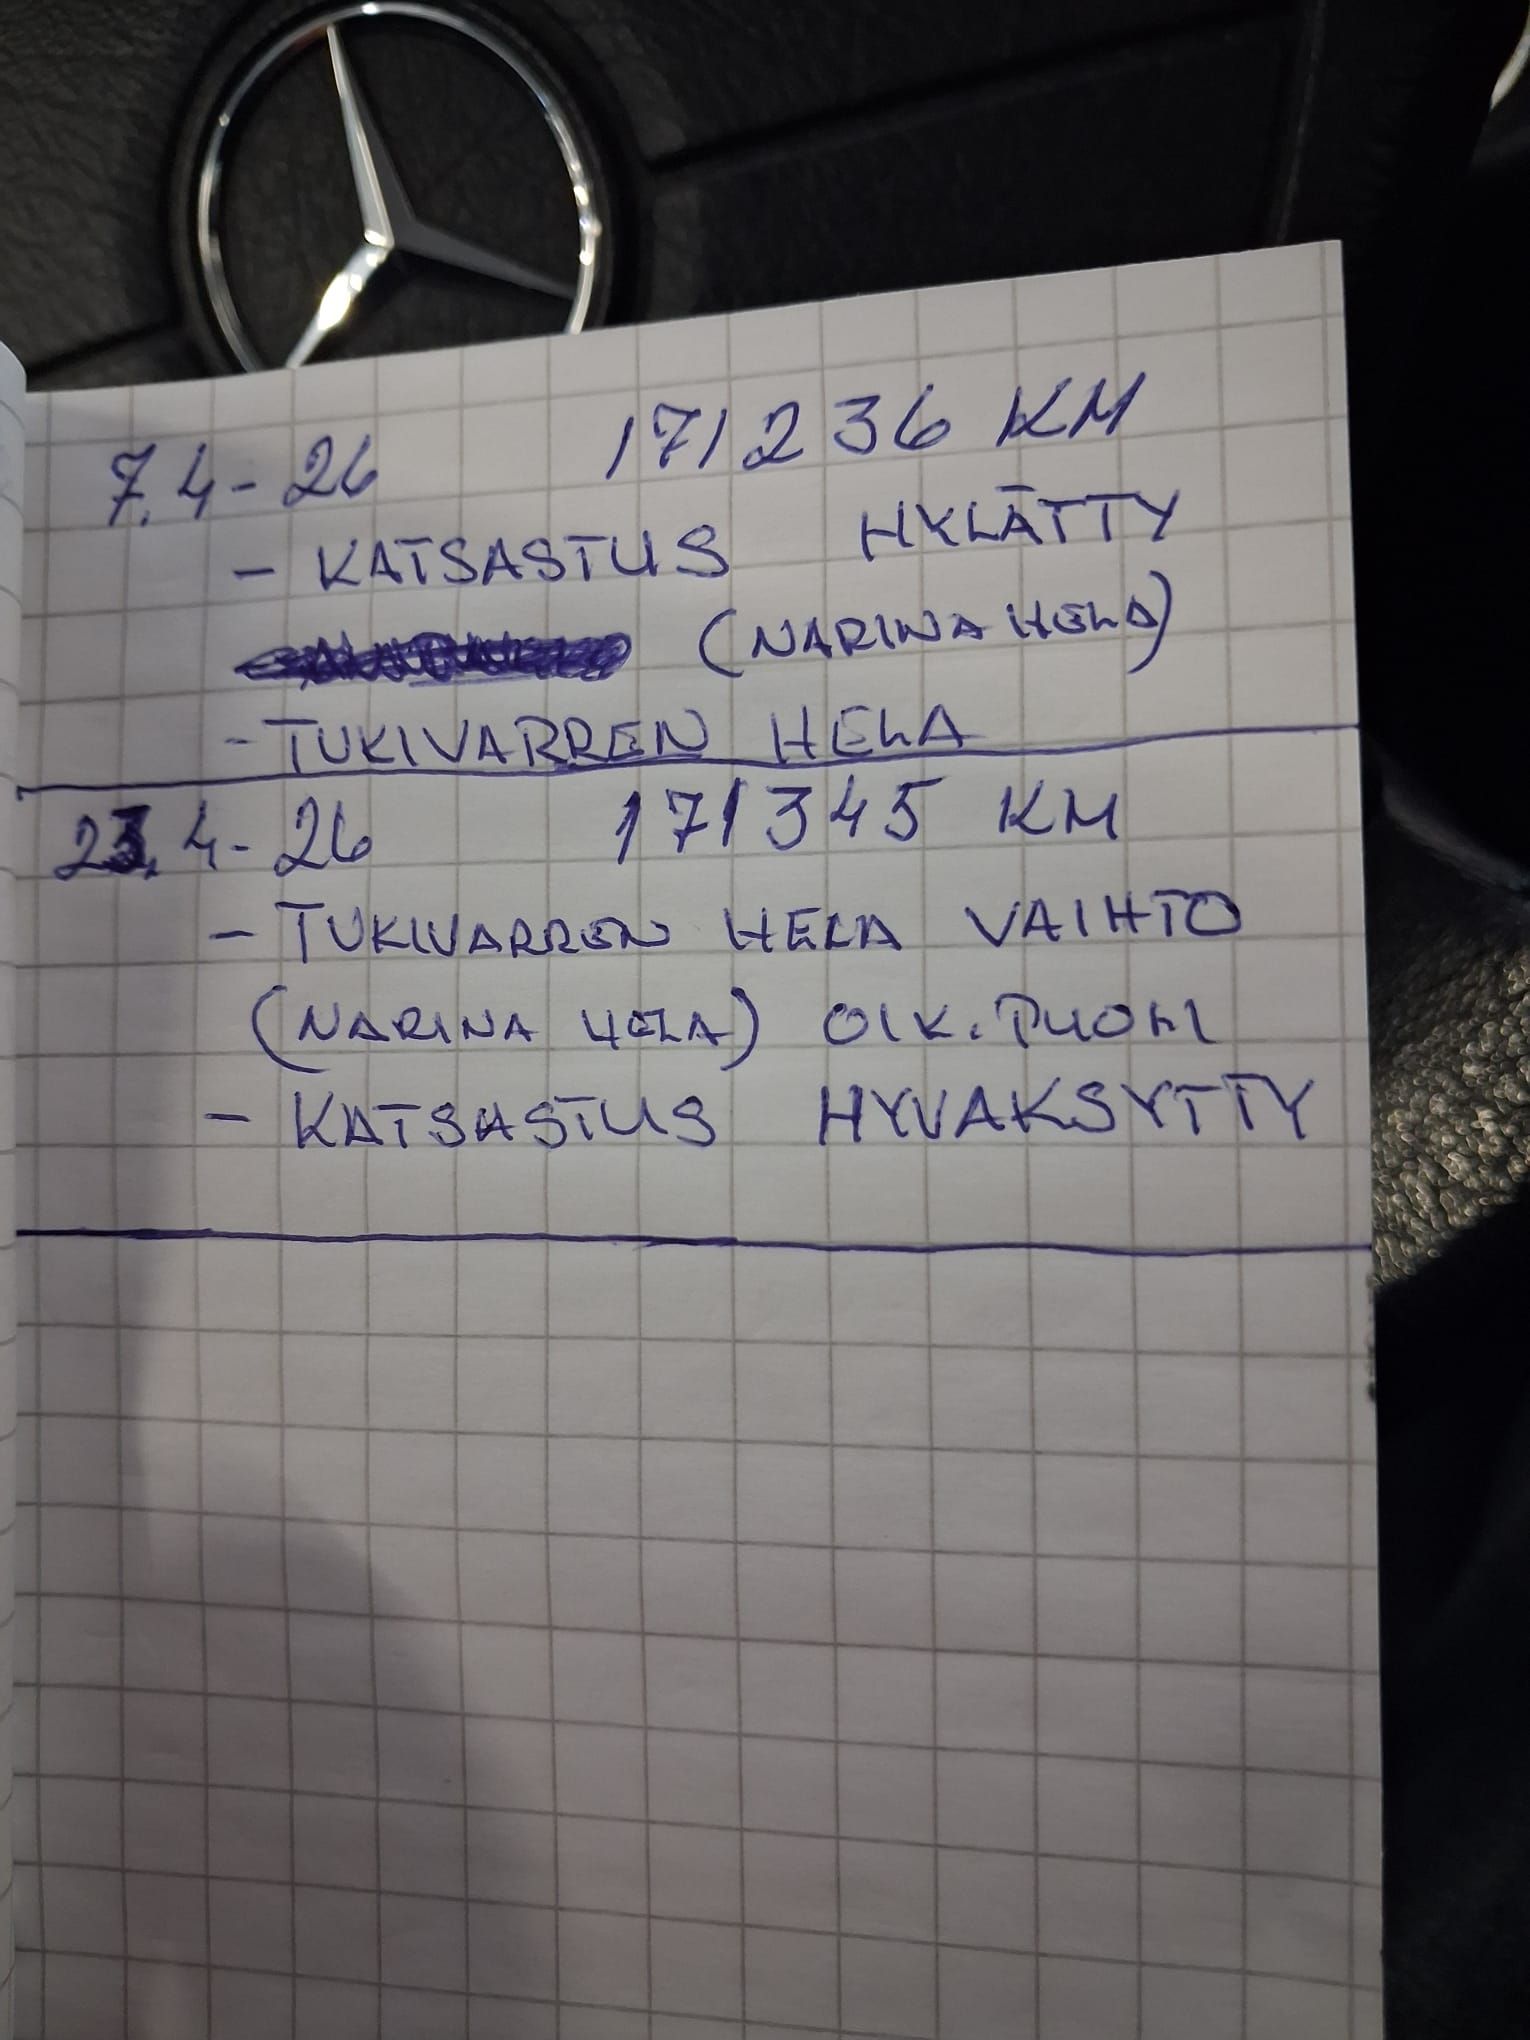 7.4-26 171236 KM
- KATSASTUS HYLÄTTY
(NARINA HELA)
- TUKIVARREN HELA
23.4-26 171345 KM
- TUKIVARREN HELA VAIHTO
(NARINA HELA) OIK. PUOLI
- KATSASTUS HYVAKSYTTY